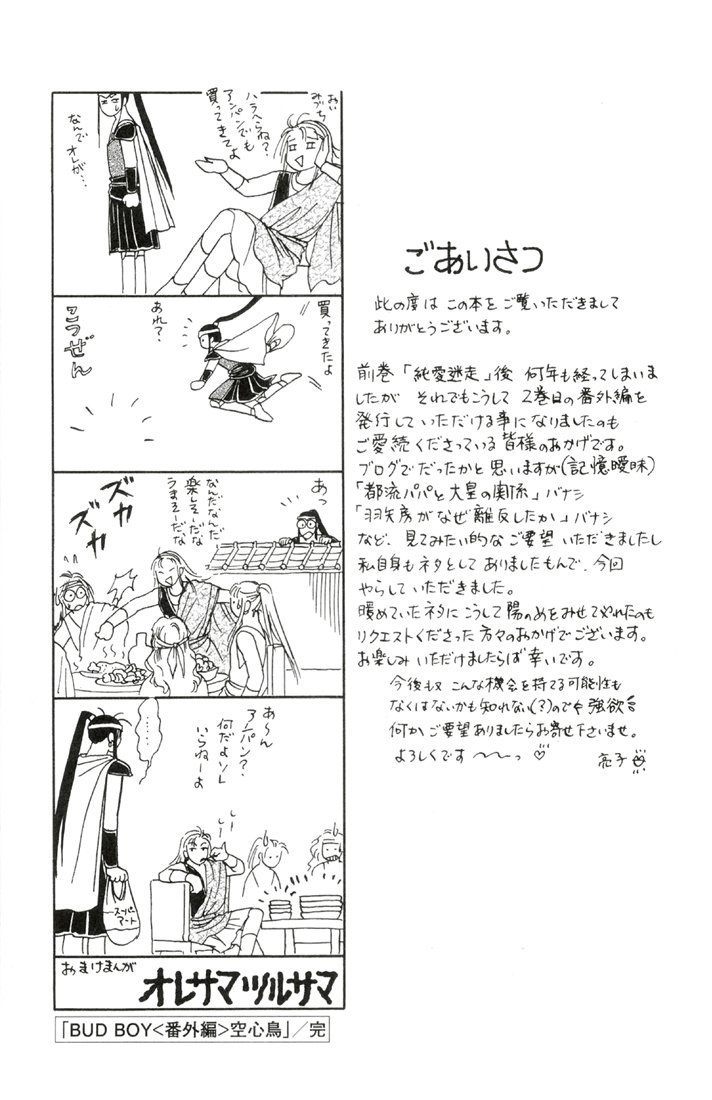 おい
みづち
ハラへらね?
アンパンでも
買ってきてよ
なんで
オレが…
買ってきたよ
あれ?
こつぜん
あっ
なんだなんだ
楽しそーだな
うまそーだな
ズカ
ズカ
あ〜ん
アンパン?
何だよソレ
いらねーよ
しーしー
……
スーパー
マート
おまけまんが
オレサマツルサマ
「BUD BOY<番外編>空心鳥」/完
ごあいさつ
此の度は この本をご覧いただきまして
ありがとうございます。
前巻「純愛迷走」後 何年も経ってしまいま
したが それでもこうして 2巻目の番外編を
発行していただける事になりましたのも
ご愛続くださっている皆様のおかげです。
ブログでだったかと思いますが(記憶曖昧)
「都流パパと大皇の関係」バナシ
「羽矢房がなぜ離反したか」バナシ
など、見てみたい的なご要望いただきましたし
私自身もネタとしてありましたもんで、今回
やらしていただきました。
暖めていたネタにこうして陽のめをみせてやれたのも
リクエストくださった方々のおかげでございます。
お楽しみいただけましたらば幸いです。
今後も又 こんな機会を持てる可能性も
なくはないかも知れない(?)ので 強欲
何かご要望ありましたらお寄せ下さいませ。
よろしくです〜〜っ♡
亮子